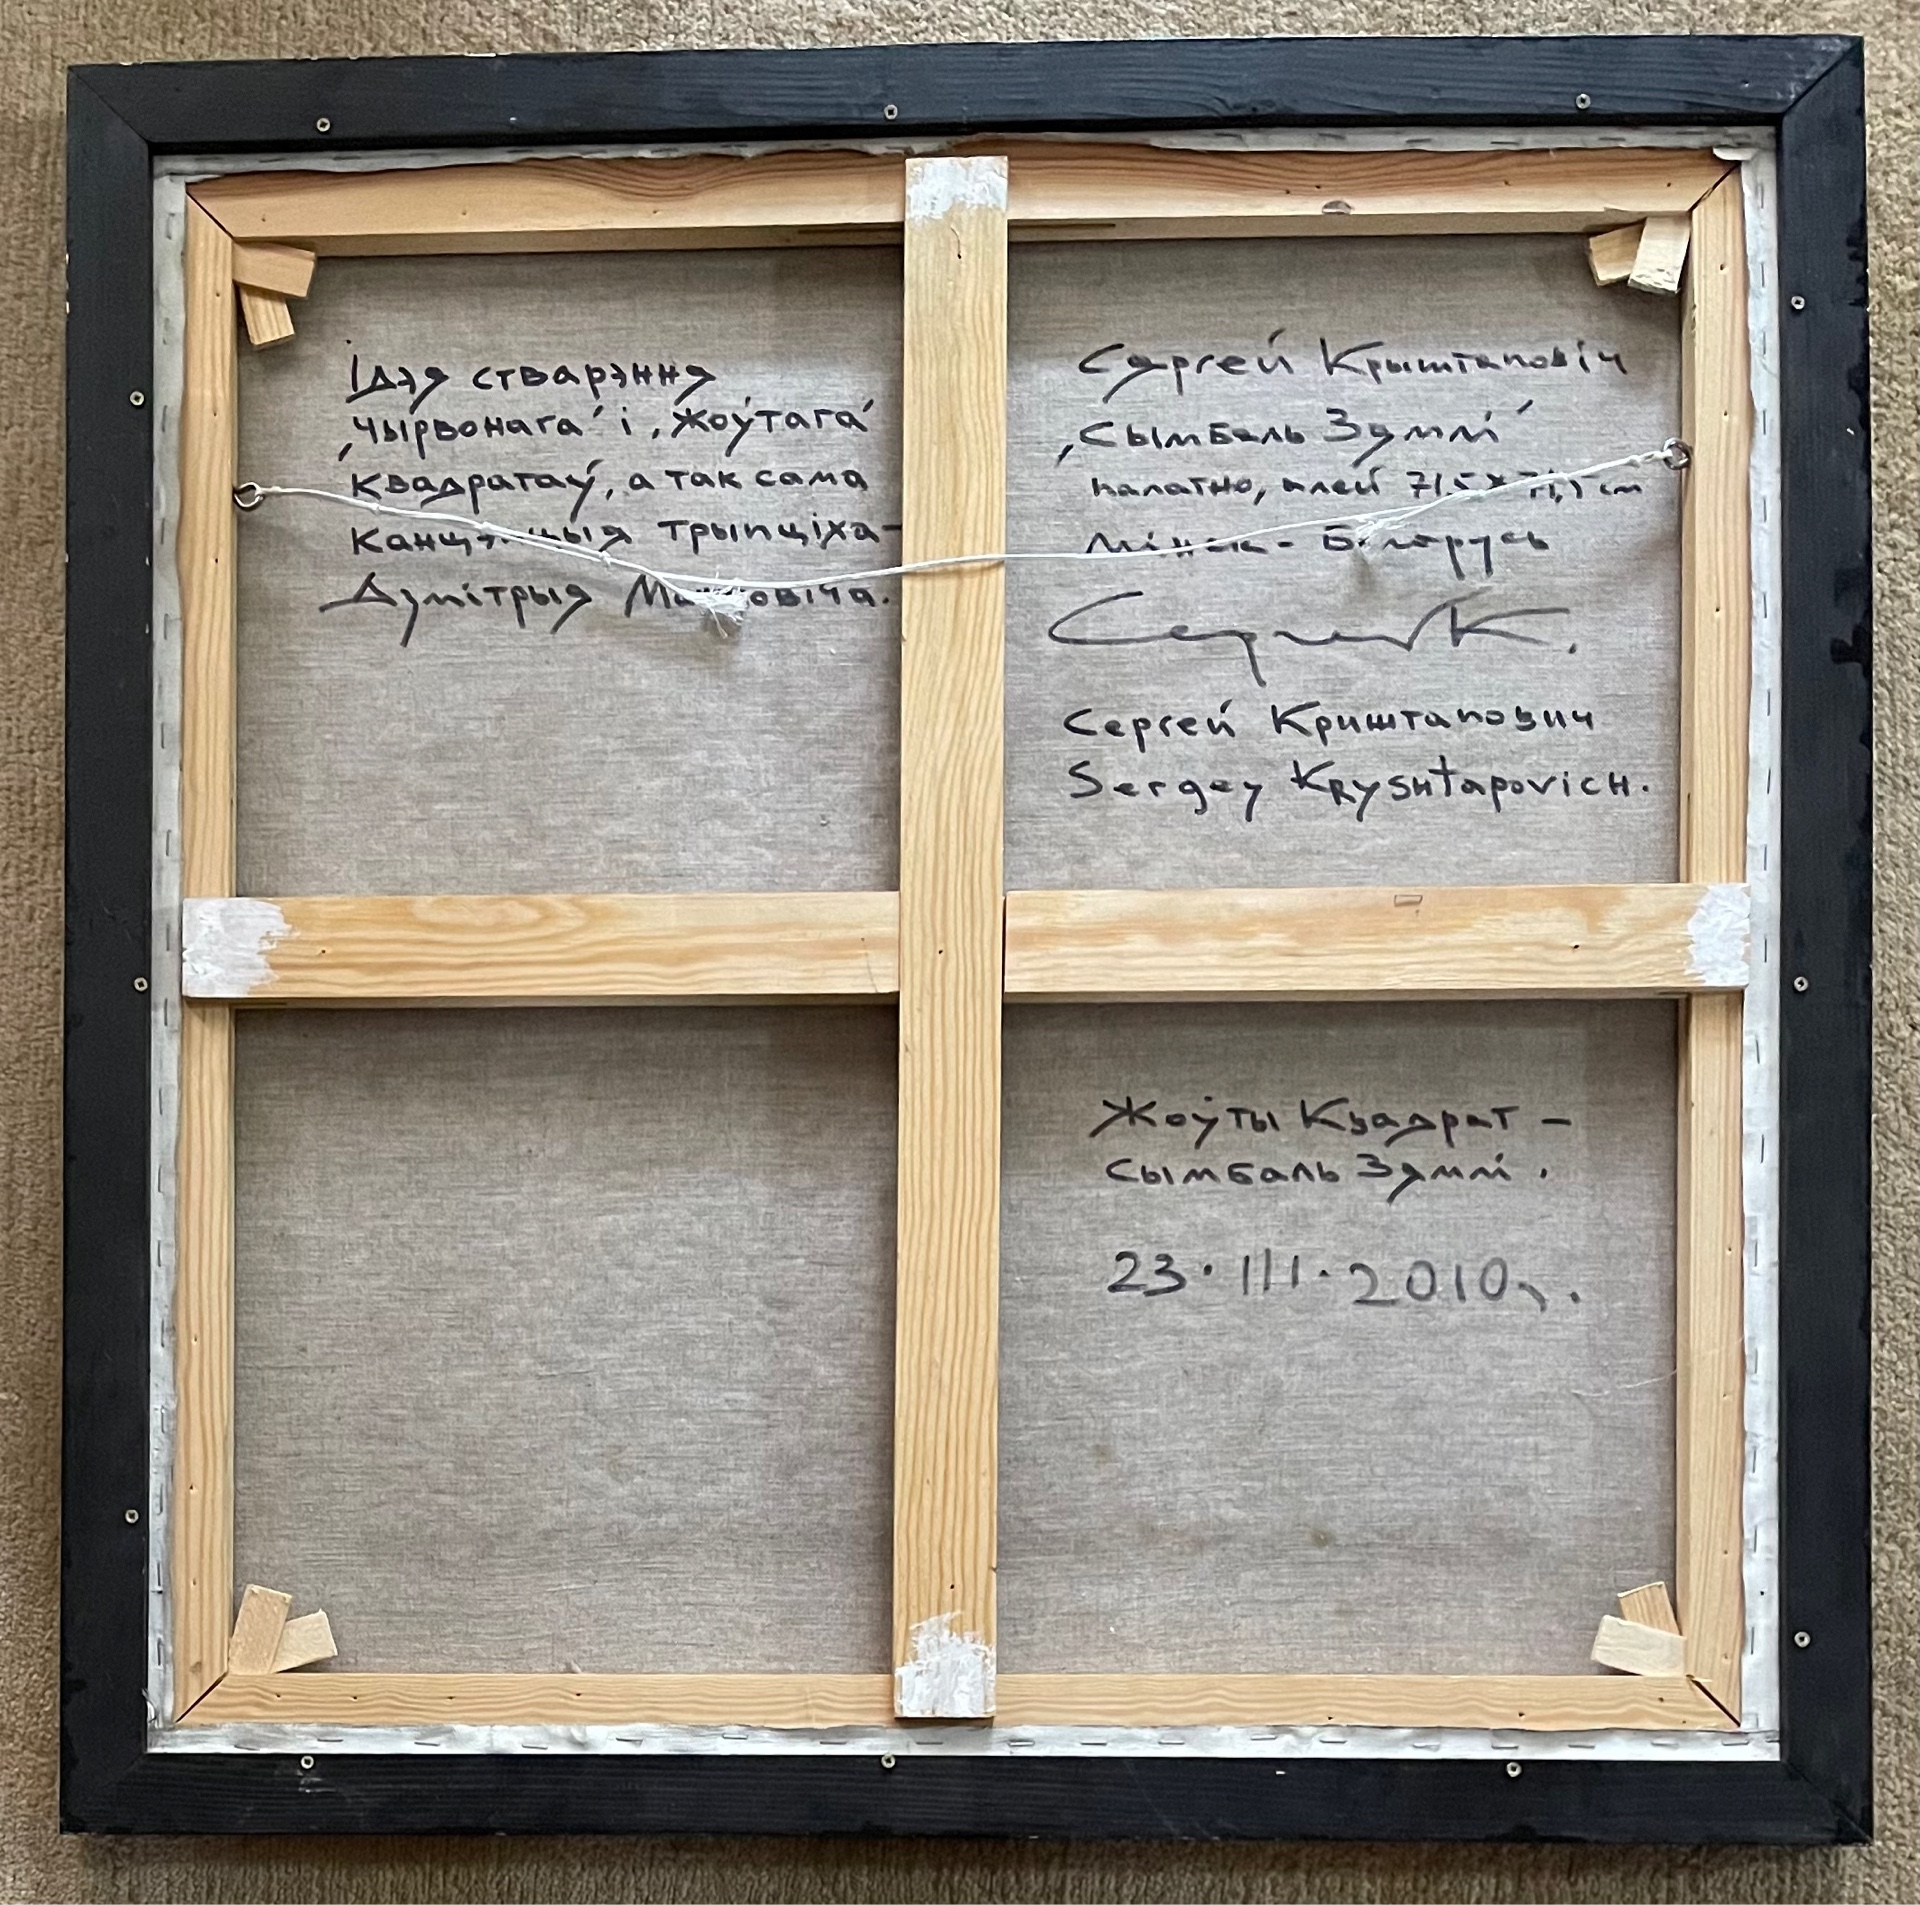 Ідэя стварэння
‚чырвонага‘ і ‚жоўтага‘
квадратаў, а так сама
трыпціха-
Дзмітрыя
Сяргей Крыштаповіч
‚Сымбаль Зямлі‘
палатно, алей 71,5 × 71,5 см
Мінск - Беларусь
Сергей К.
Сергей Криштапович
Sergey KRYSHtapovich.
Жоўты Квадрат –
Сымбаль Зямлі.
23·III·2010г.